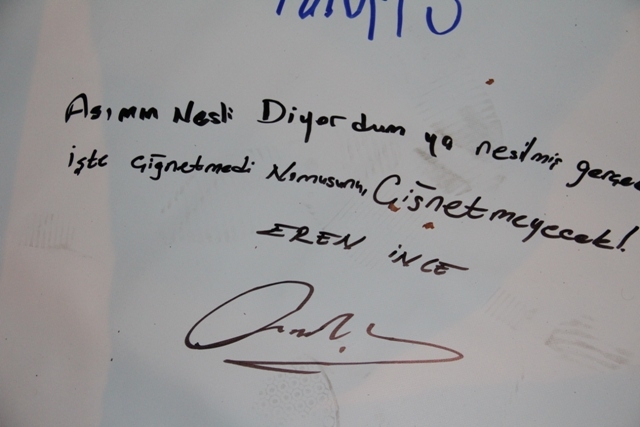 Asımın Nesli Diyordum ya nesilmiş gerçek
işte çiğnetmedi Namusunu, Çiğnetmeyecek!
EREN İNCE